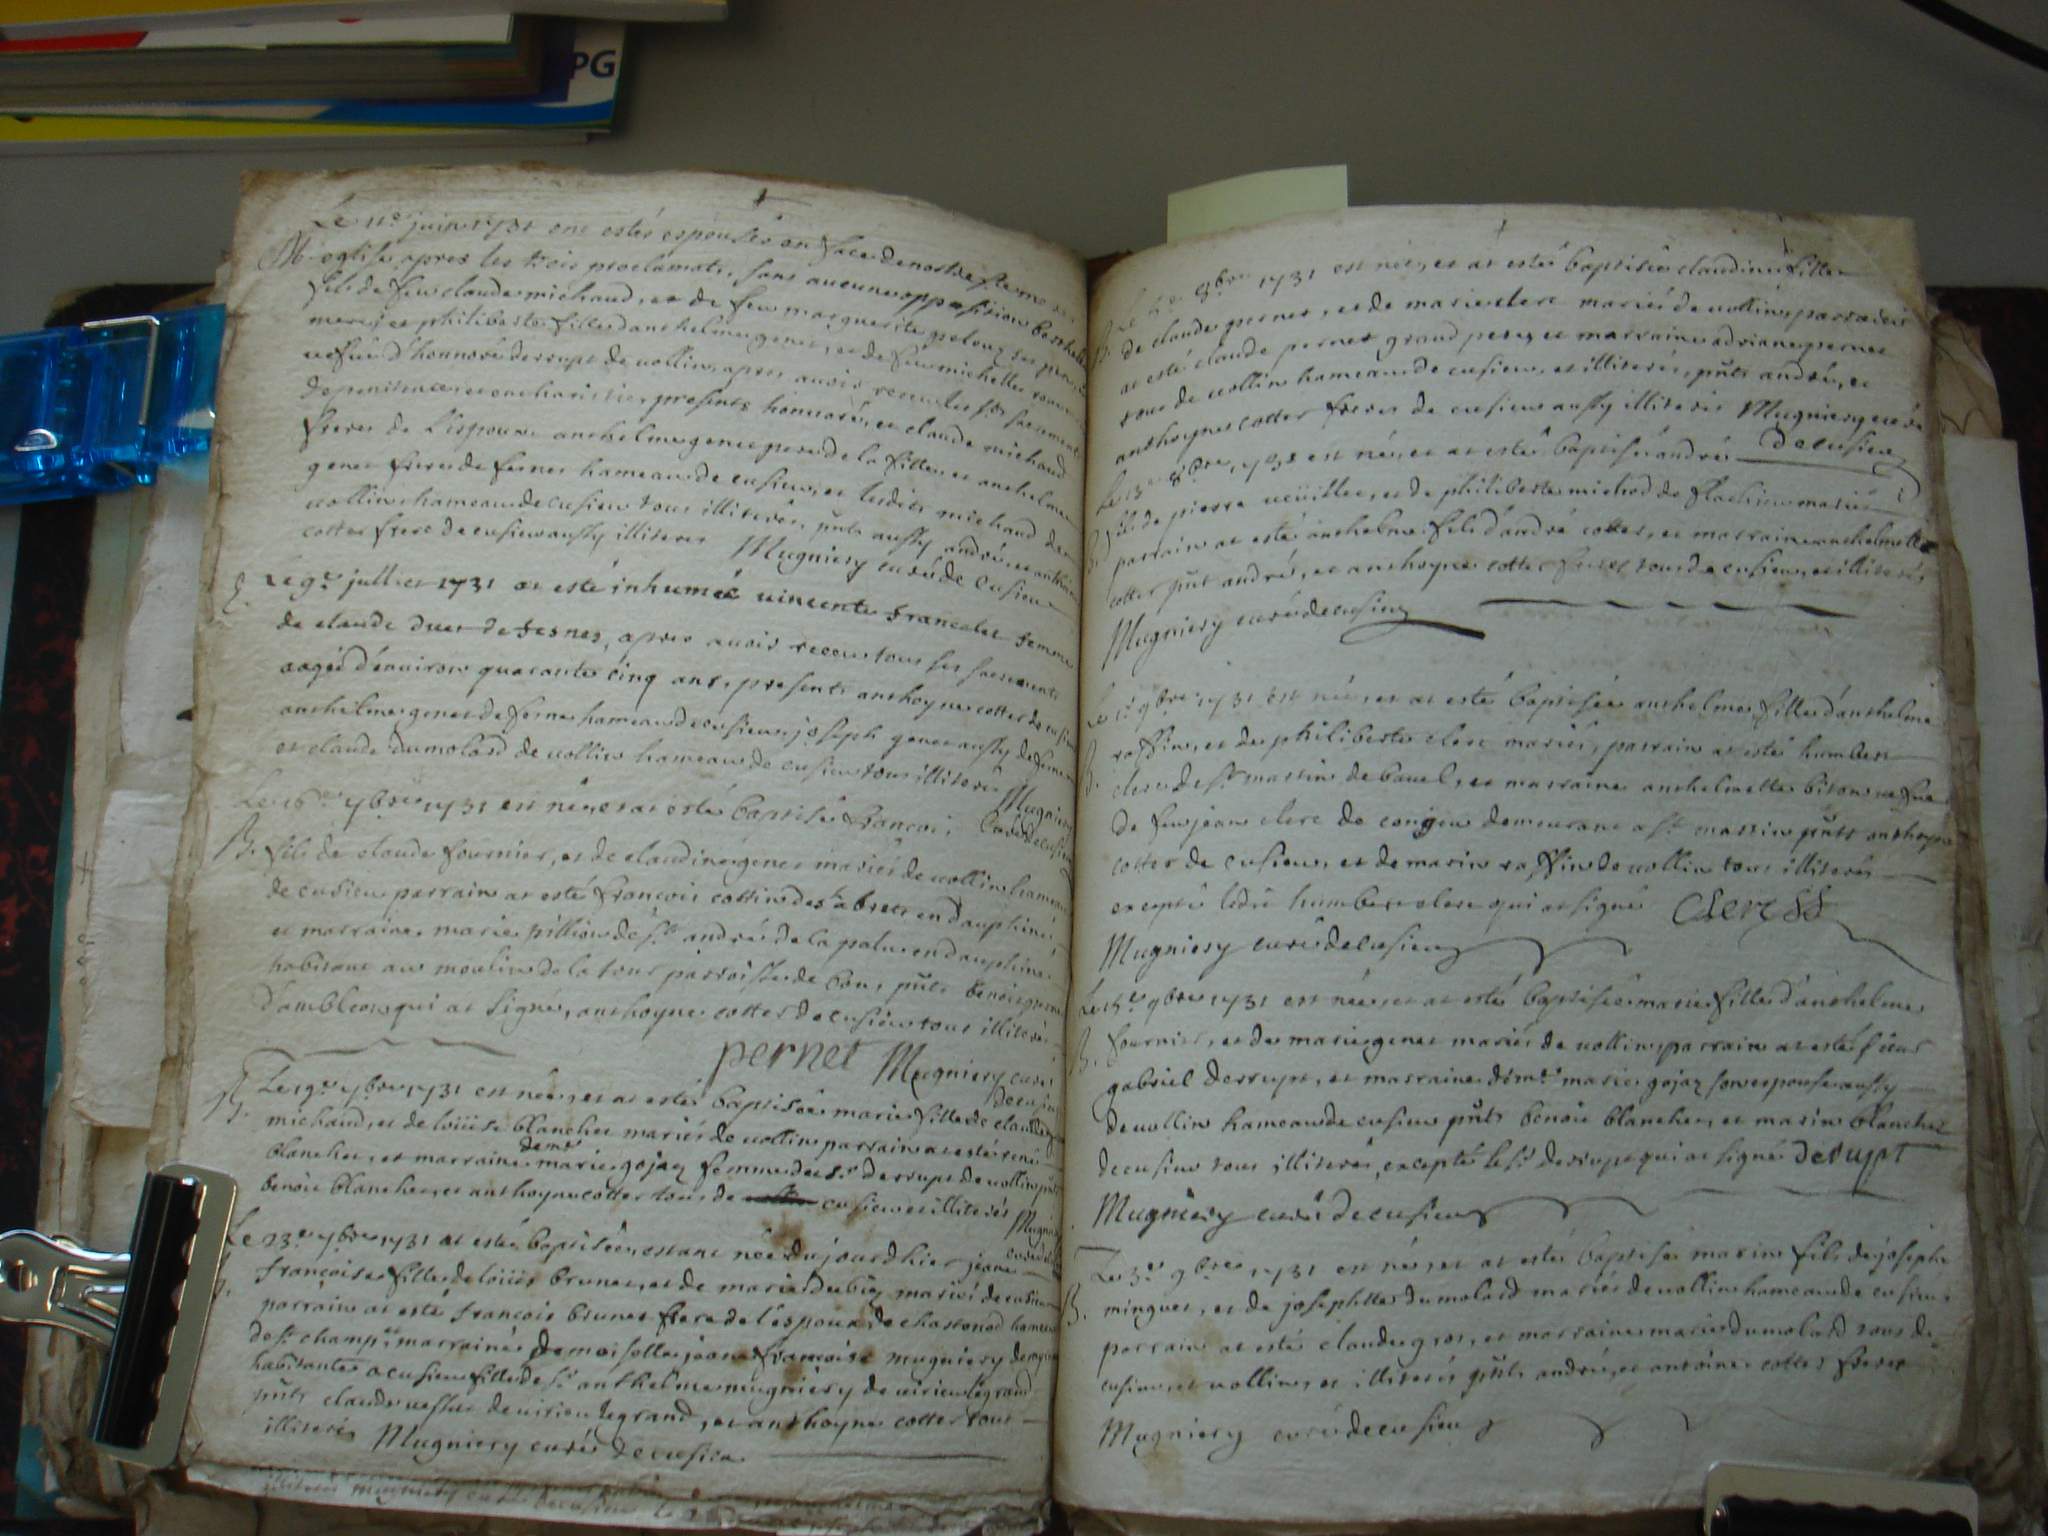 PG
Le 11e juin 1731 ont estés espousés en face de nostre ste mere
M. eglise apres les trois proclamats, sans aucune opposition
fils de feu claude michaud, et de feu marguerite
et philiberte fille d'anthelme genet, et de feu michelle
d'honnoré derrupt de vollin, apres avoir receu les sts sacrements
de penitence, et eucharistie, presents honnoré, et claude michaud
freres de l'espoux anthelme genet pere de la fille, et anthelme
genet frere de fernes hameau de cusieu, et lesdits michaud de
vollin hameau de cusieu tous illiterés, pnts aussy andré, et anthoyne
cottet frere de cusieu aussy illiterés Mugniery curé de Cusieu
Le 9e jullet 1731 at esté inhumée vincente francelet femme
de claude duet de fernes, apres avoir receu tous ses sacrements
aagée d'environ quarante cinq ans, presents anthoyne cottet de cusieu
anthelme genet de ferne hameau de cusieu, joseph genet aussy de ferne
et claude dumolard de vollin hameau de cusieu tous illiterés Mugniery
Curé de cusieu
Le 16e 7bre 1731 est né, et at esté baptisé francois
B. fils de claude fournier, et de claudine genet mariés de vollin hameau
de cusieu parrain at esté francois cottin des abrets en dauphiné,
et marraine marie pillion de st andré de la palu en dauphiné
habitant au moulin de la tour parroisse de Cons, pnts benoit
d'ambleon qui at signé, anthoyne cottet de cusieu tous illiterés
pernet Mugniery curé
de cusieu
B. Le 19e 7bre 1731 est née, et at esté baptisée marie fille de claude
michaud, et de loüise blanchet mariés de vollin parrain at esté rené
blanchet, et marraine demle marie gojoz femme du sr derrupt de vollin pnts
benoit blanchet, et anthoyne cottet tous de cusieu et illiterés Mugniery
curé de
Le 23e 7bre 1731 at esté baptisée, estant née du jourdhier jeane
B. françoise fille de loüis brunet, et de marie dubiez mariés de cusieu
parrain at esté francois brunet frere de l'espoux, de chatonod hameau
de st champ, et marraine demoiselle jeane françoise mugniery
habitante a cusieu fille de sr anthelme mugniery de virieu le grand
pnts claude de virieu le grand, et anthoyne cottet tous
illiterés Mugniery curé de cusieu
8bre 1731 est née, et at esté baptisée claudine fille
B. de claude pernet, et de marie clerc mariés de vollin parrain
at esté claude pernet grand pere, et marraine adriane pernet
tous de vollin hameau de cusieu, et illiterés, pnts andré, et
anthoyne cottet freres de cusieu aussy illiterés Mugniery curé
de cusieu
Le 13e 8bre 1731 est né, et at esté baptisé andré
B. fils de pierre et de philiberte michod de flachieu mariés
parrain at esté anthelme fils d'andré cottet, et marraine anthelmette
cottet pnt andré, et anthoyne cottet freres tous de cusieu, et illiterés
Mugniery curé de cusieu
9bre 1731 est née, et at esté baptisée anthelme fille d'anthelme
B. raffin, et de philiberte clerc mariés, parrain at esté humbert
clerc de st martin de bavel, et marraine anthelmette biton vefve
de feu jean clerc de congieu demeurant a st martin pnts anthoyne
cottet de cusieu, et de marin raffin de vollin tous illiterés
excepté ledit humbert clerc qui at signé Clerc
Mugniery curé de cusieu
Le 15e 9bre 1731 est née, et at esté baptisée marie fille d'anthelme
B. fournier, et de marie genet mariés de vollin parrain at esté sieur
gabriel derrupt, et marraine demle marie gojoz son espouse aussy
de vollin hameau de cusieu pnts benoit blanchet, et marin blanchet
de cusieu tous illiterés, excepté le sr derrupt qui at signé derupt
Mugniery curé de cusieu
9bre 1731 est né, et at esté baptisé marin fils de joseph
B. minguet, et de josephte dumolard mariés de vollin hameau de cusieu,
parrain at esté claude gros, et marraine marie dumolard tous de
cusieu, et vollin, et illiterés pnts andré, et antoine cottet freres
Mugniery curé de cusieu